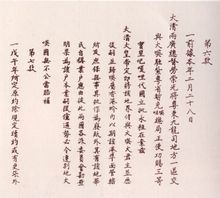 第六款
一前據本年二月二十八日
大清兩廣總督勞崇光將粵東九龍司地方一區交
與大𠸄駐紮粵省暫充𠸄咈總局正使功賜三等
寶星吧嗄哩代國立批永租在案茲
大清大皇帝定即將該地界付與大𠸄大君主並歷
後嗣並歸𠸄屬香港界內以期該港埠面管轄
所及庶保無事其批作為廢紙外其有該地華
民自稱業戶應由彼此兩國各派委員會勘查
明果為該戶本業嗣後倘遇勢必令遷別地大
𠸄國無不公當賠補
第七款
一戊午年所定原約除現定續約或有更張外